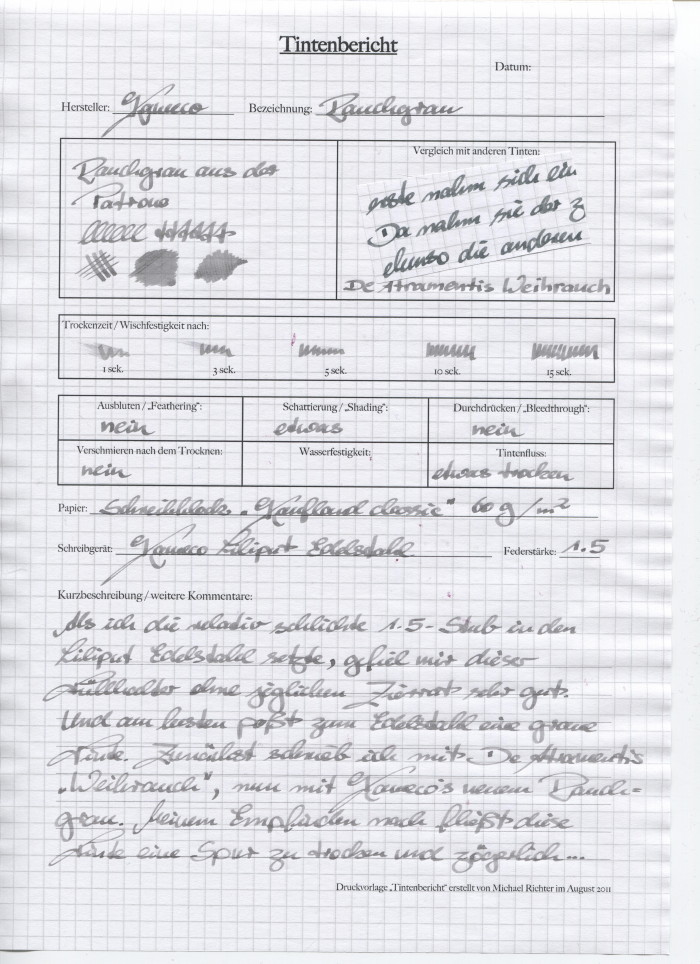 Tintenbericht
Datum:
Hersteller: Kaweco Bezeichnung: Rauchgrau
Rauchgrau aus der
Patrone
Vergleich mit anderen Tinten:
erste nahm sich ein
Da nahm sie der z
ebenso die anderen
De Atramentis Weihrauch
Trockenzeit / Wischfestigkeit nach:
1 sek. 3 sek. 5 sek. 10 sek. 15 sek.
Ausbluten / „Feathering": Schattierung / „Shading": Durchdrücken / „Bleedthrough":
nein etwas nein
Verschmieren nach dem Trocknen: Wasserfestigkeit: Tintenfluss:
nein etwas trocken
Papier: Schreibblock „Kaufland classic" 60 g/m²
Schreibgerät: Kaweco Liliput Edelstahl Federstärke: 1.5
Kurzbeschreibung / weitere Kommentare:
Als ich die relativ schlichte 1.5-Stub in den
Liliput Edelstahl setzte, gefiel mir dieser
Füllhalter ohne jeglichen Zierrat sehr gut.
Und am besten paßt zum Edelstahl eine graue
Tinte. Zunächst schrieb ich mit De Atramentis
„Weihrauch", nun mit Kaweco's neuem Rauch-
grau. Meinem Empfinden nach fließt diese
Tinte eine Spur zu trocken und zögerlich...
Druckvorlage „Tintenbericht" erstellt von Michael Richter im August 2011